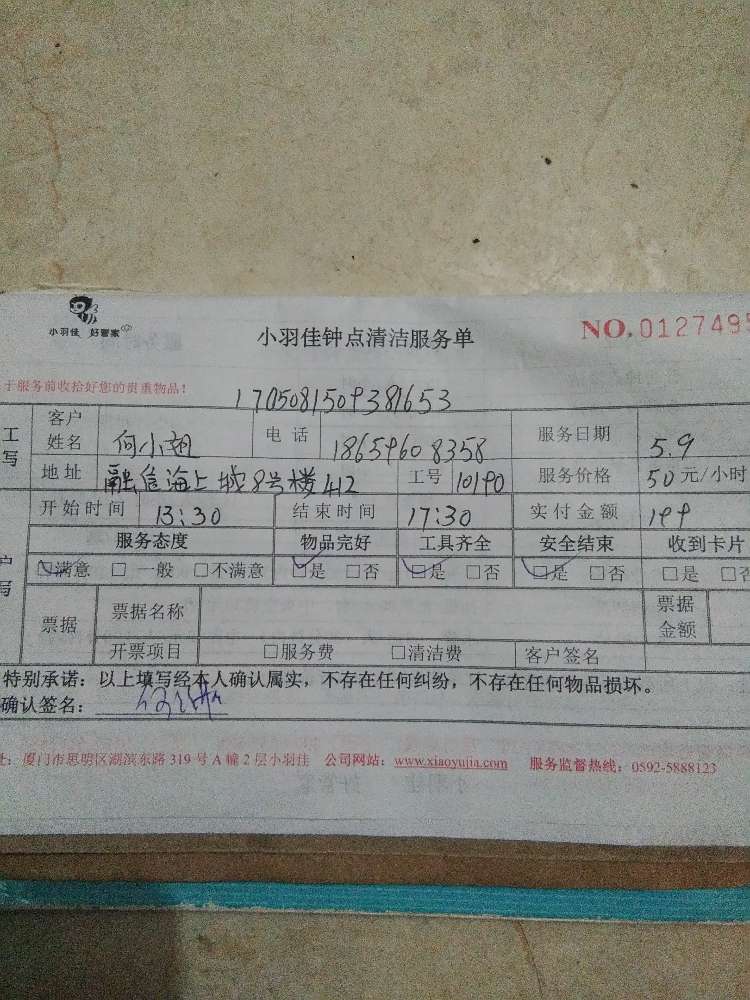 小羽佳 好管家
小羽佳钟点清洁服务单
NO.0127495
于服务前收拾好您的贵重物品！
1705081509381653
工 写
客户姓名 何小翅 电话 18659608358 服务日期 5.9
地址 融信海上城8号楼412 工号 10190 服务价格 50元/小时
开始时间 13:30 结束时间 17:30 实付金额 199
户 写
服务态度 物品完好 工具齐全 安全结束 收到卡片
☑满意 □一般 □不满意 ☑是 □否 ☑是 □否 ☑是 □否 □是 □否
票据 票据名称 票据金额
开票项目 □服务费 □清洁费 客户签名
特别承诺：以上填写经本人确认属实，不存在任何纠纷，不存在任何物品损坏。
确认签名：
址：厦门市思明区湖滨东路319号A幢2层小羽佳 公司网站：www.xiaoyujia.com 服务监督热线：0592-5888123